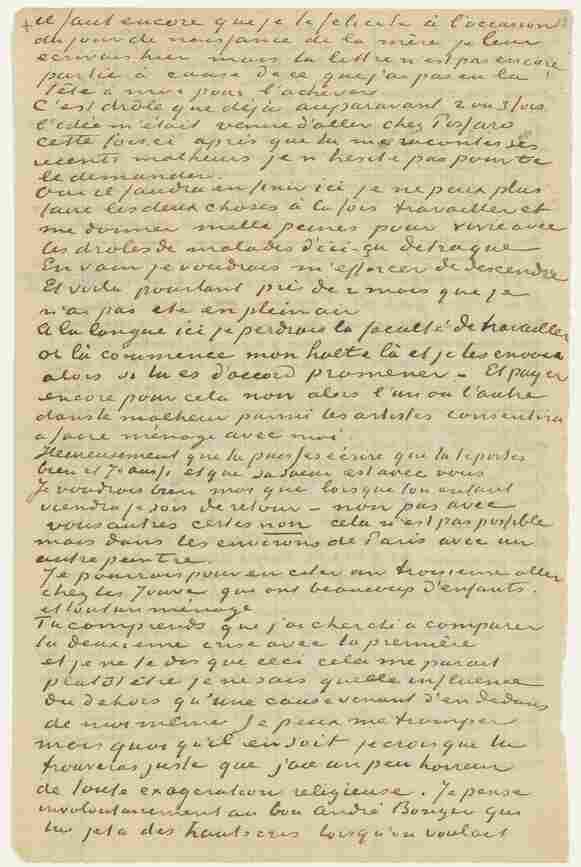 il faut encore que je te felicite à l'occasion
du jour de naissance de la mère je leur
ecrivais hier mais la lettre n'est pas encore
partie à cause de ce que j'ai pas eu la
tête à moi pour l'achever.
C'est drôle que déjà auparavant 2 ou 3 fois
l'idée m'était venue d'aller chez Pissaro
cette fois ci après que tu me racontes ses
recents malheurs je n'hesite pas pour te
le demander.
Oui il faudra en finir ici je ne peux plus
faire les deux choses à la fois travailler et
me donner mille peines pour vivre avec
les drôles de malades d'ici – ça detraque
En vain je voudrais m'efforcer de descendre
Et voilà pourtant près de 2 mois que je
n'ai pas été en plein air
A la longue ici je perdrais la faculté de travailler
or là commence mon halte là et je les envoie
alors si tu es d'accord promener – Et payer
encore pour cela non alors l'un ou l'autre
dans le malheur parmi les artistes consentira
à faire ménage avec moi.
Heureusement que tu puisses écrire que tu te portes
bien et Jo aussi et que sa sœur est avec vous
Je voudrais bien moi que lorsque ton enfant
viendra je sois de retour – non pas avec
vous autres certes non cela n'est pas possible
mais dans les environs de Paris avec un
autre peintre.
Je pourrais pour en citer un troisieme aller
chez les Jouve qui ont beaucoup d'enfants.
et tout un ménage
Tu comprends que j'ai cherché à comparer
la deuxieme crise avec la première
et je ne te dis que ceci cela me parait
plutôt être je ne sais quelle influence
du dehors qu'une cause venant d'en dedans
de moi même je peux me tromper
mais quoi qu'il en soit je crois que tu
trouveras juste que j'aie un peu horreur
de toute exagération religieuse. Je pense
involontairement au bon André Bonger qui
lui jeta des hauts cris lorsqu'on voulait